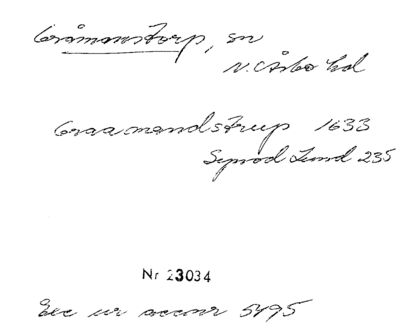 Gråmanstorp, sn
N. Åsbo hd
Graamandstrup 1633
Synod Lund 235
Nr 23034
Exc ur accnr 5495